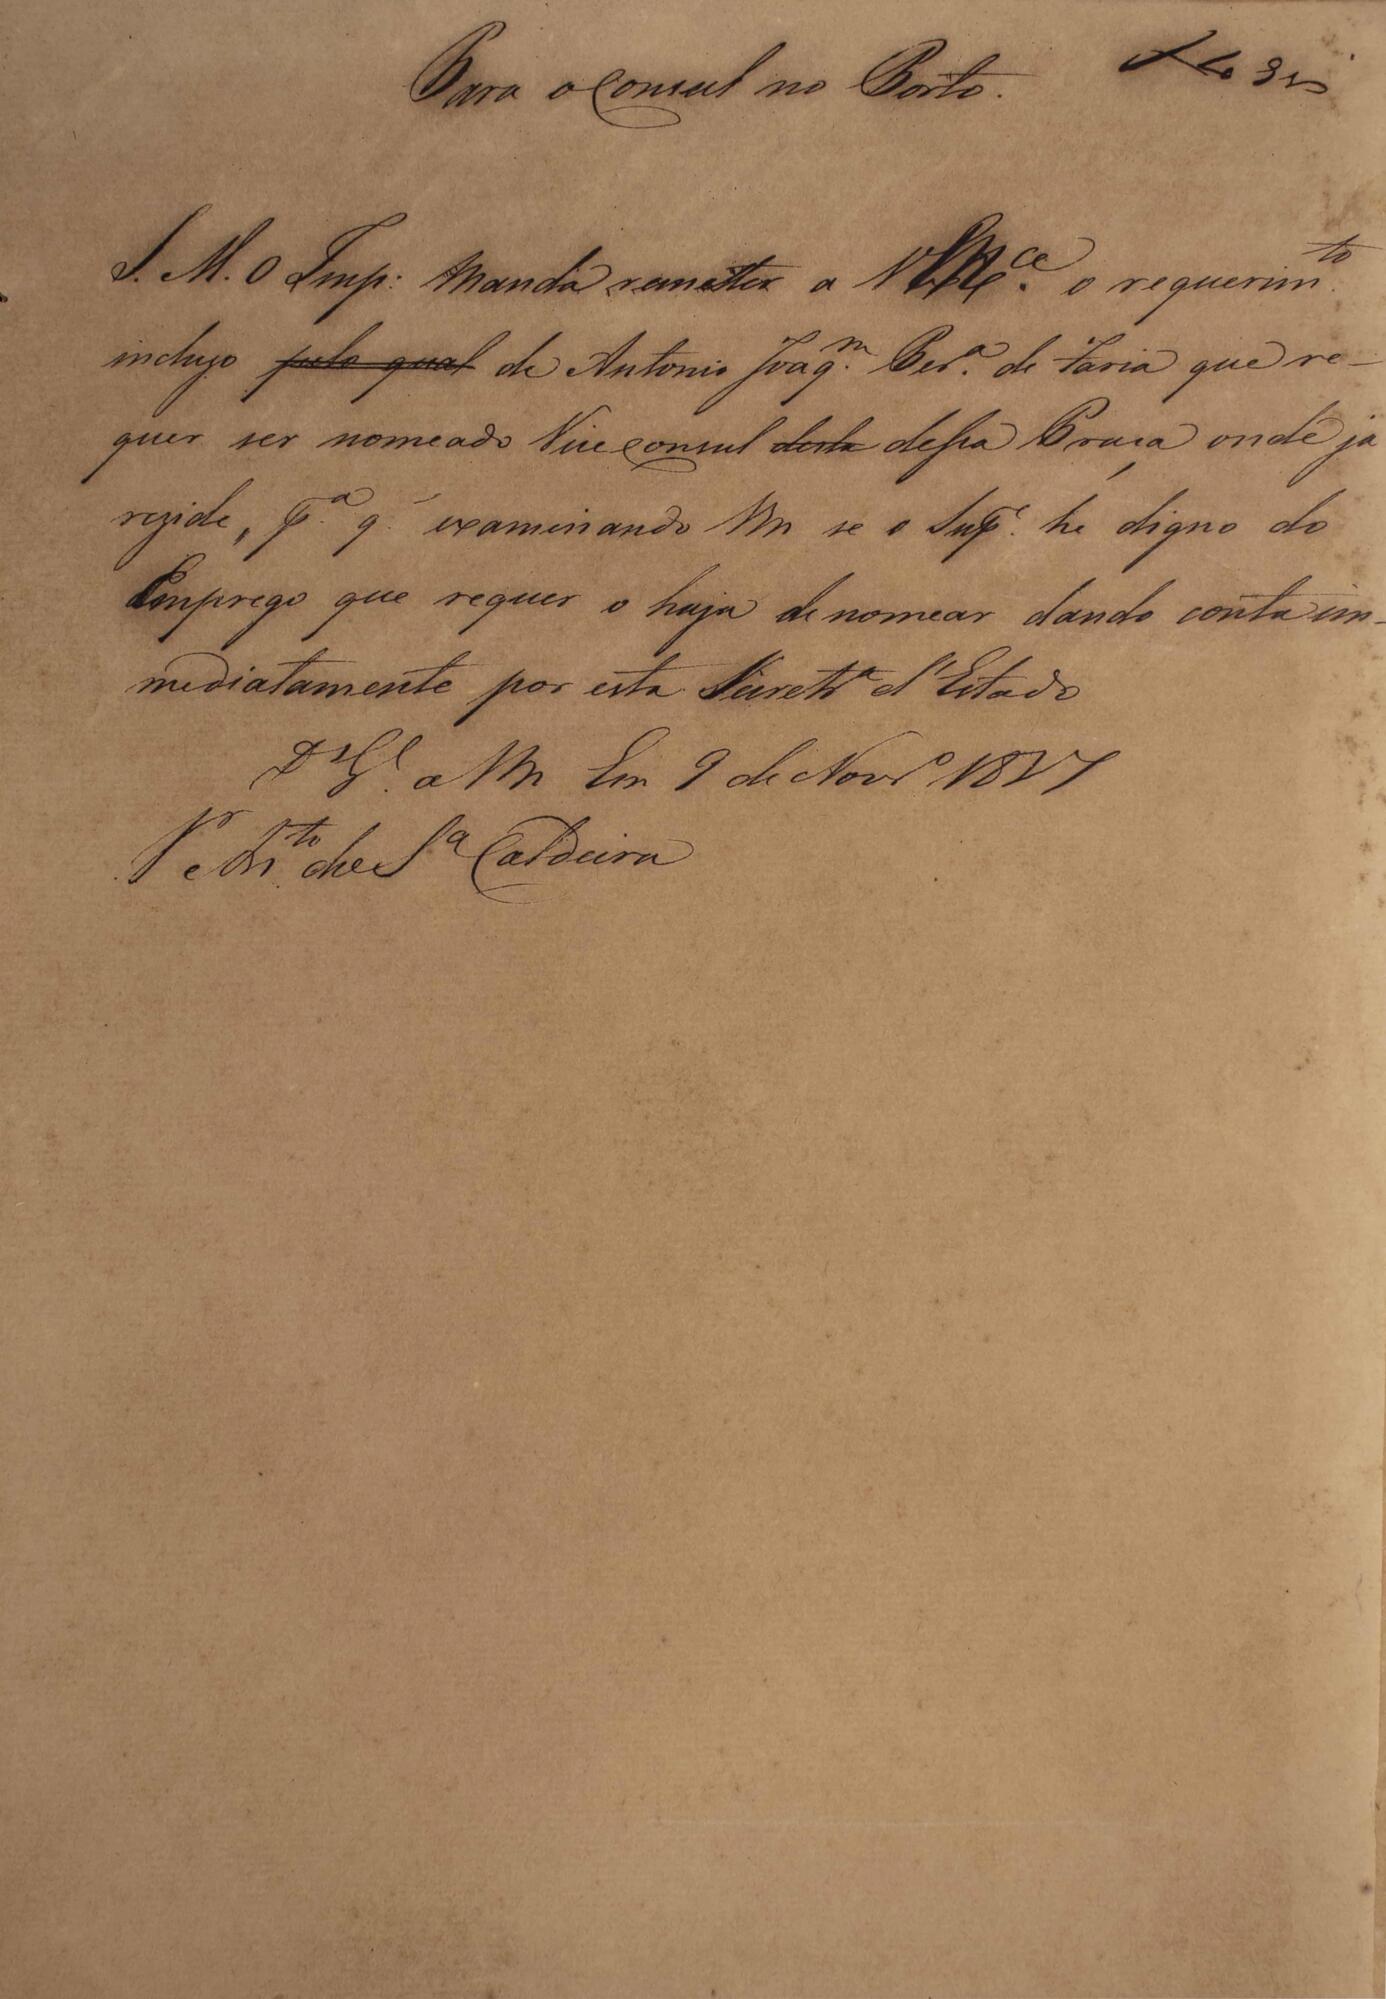 Para o Consul no Porto.
S. M. O Imp: Manda remetter a VMce. o requerimto.
incluso pelo qual de Antonio Joaqm. Per.a de Faria que re-
quer ser nomeado Vice Consul desta dessa Praça onde ja
rezide, pa. q. examinando Vm se o Supe. he digno do
Emprego que requer o haja de nomear dando conta im-
mediatamente por esta Secretra d'Estado
Ds Ge. a Vm Em 9 de Novro 1827
Sr
de Sa Caldeira